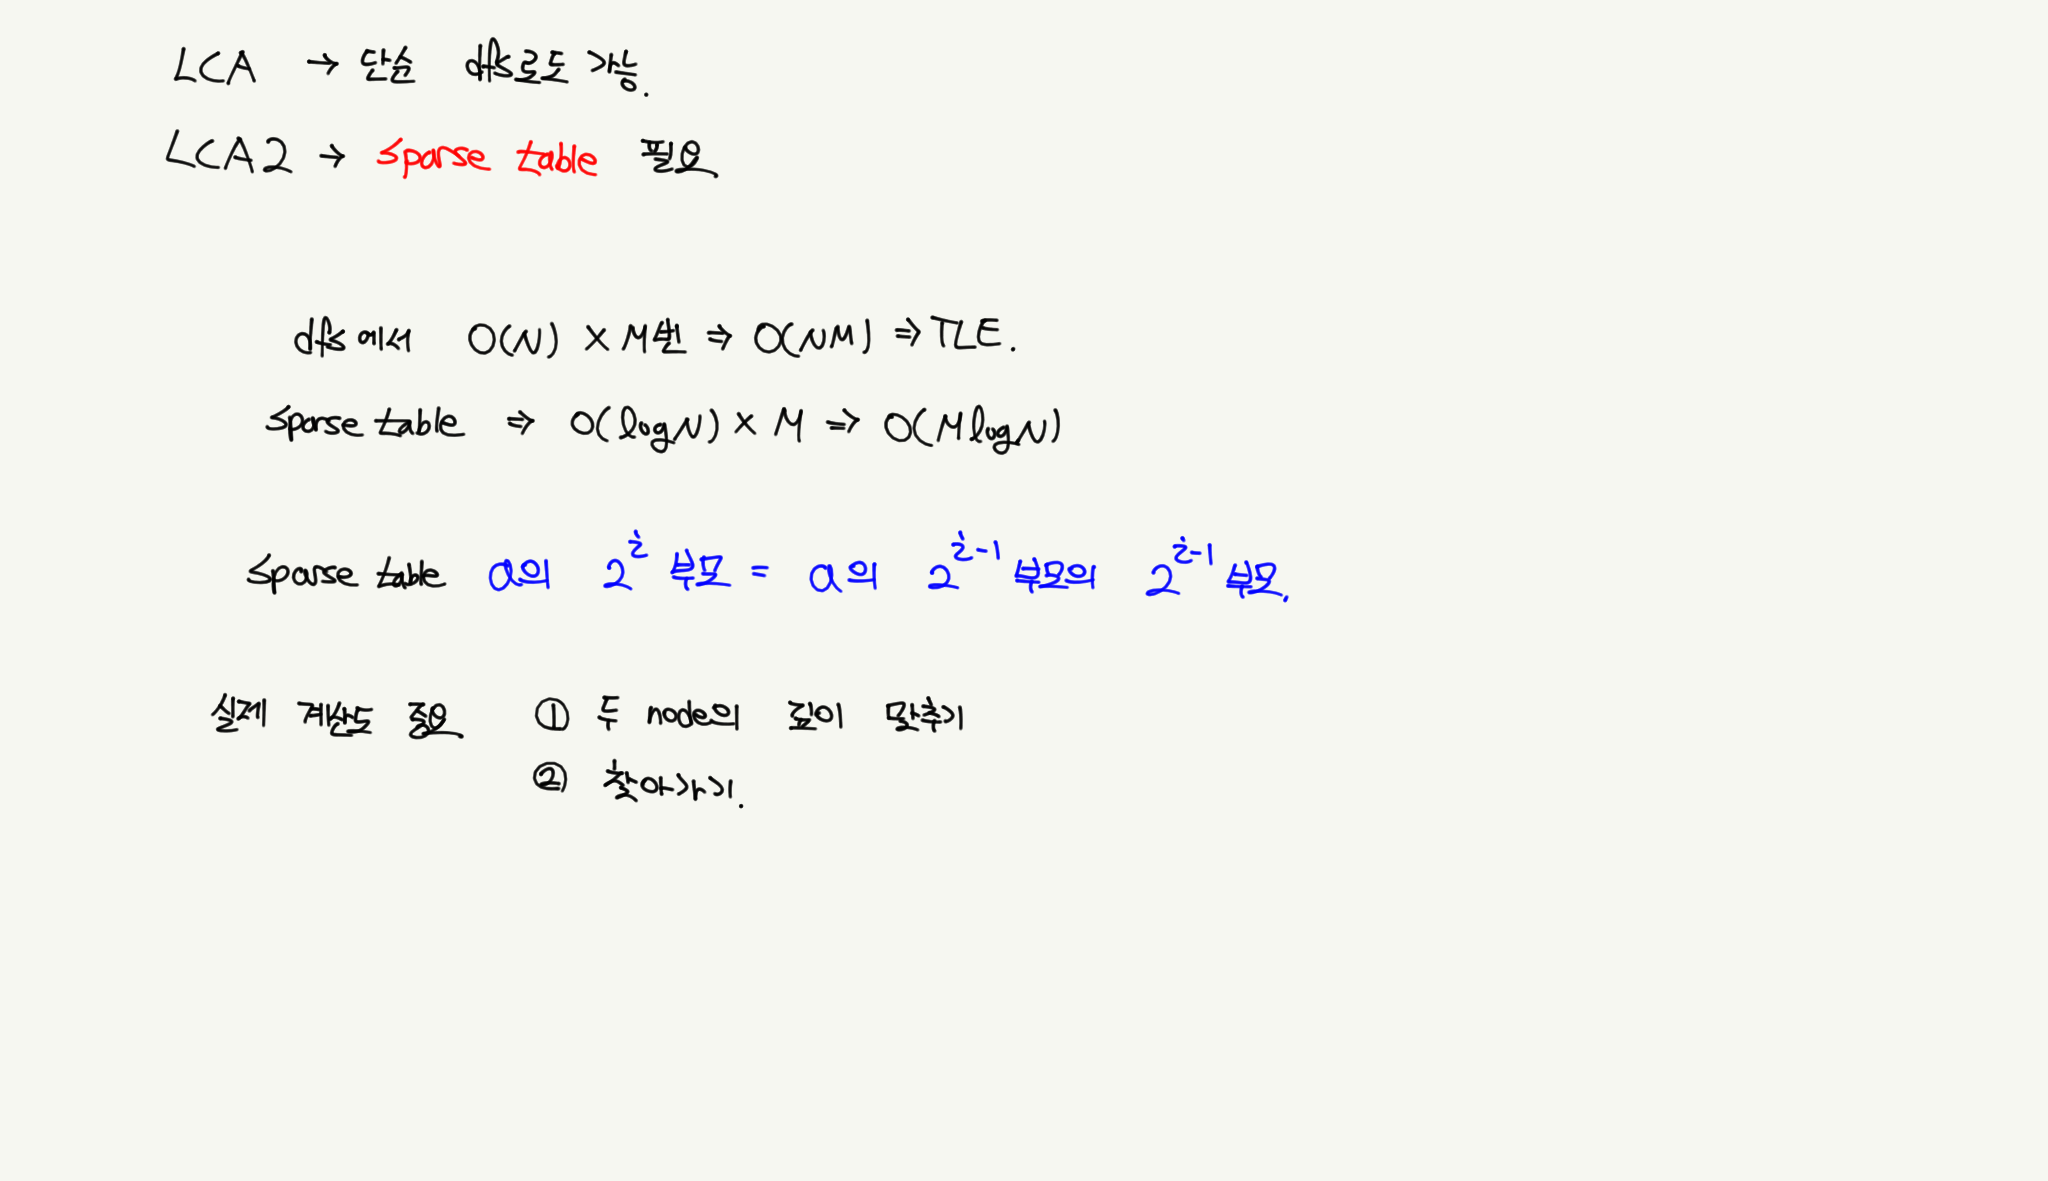 LCA → 단순 dfs로도 가능.
LCA2 → sparse table 필요
dfs에서 O(N) × M번 ⇒ O(NM) ⇒ TLE.
sparse table ⇒ O(logN) × M ⇒ O(MlogN)
sparse table a의 2^i 부모 = a의 2^{i-1} 부모의 2^{i-1} 부모.
실제 계산도 중요 ① 두 node의 깊이 맞추기
② 찾아가기.